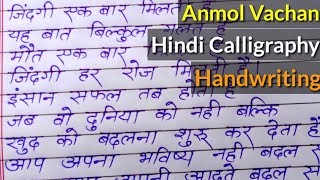 Anmol Vachan
Hindi Calligraphy
Handwriting
जिंदगी एक बार मिलती है
यह बात बिल्कुल गलत है
मौत एक बार
जिंदगी हर रोज मिलती है।
इंसान सफल तब होता है
जब वो दुनिया को नही बल्कि
खुद को बदलना शुरू कर देता है
आप अपना भविष्य नही बदल
आदतें बदल